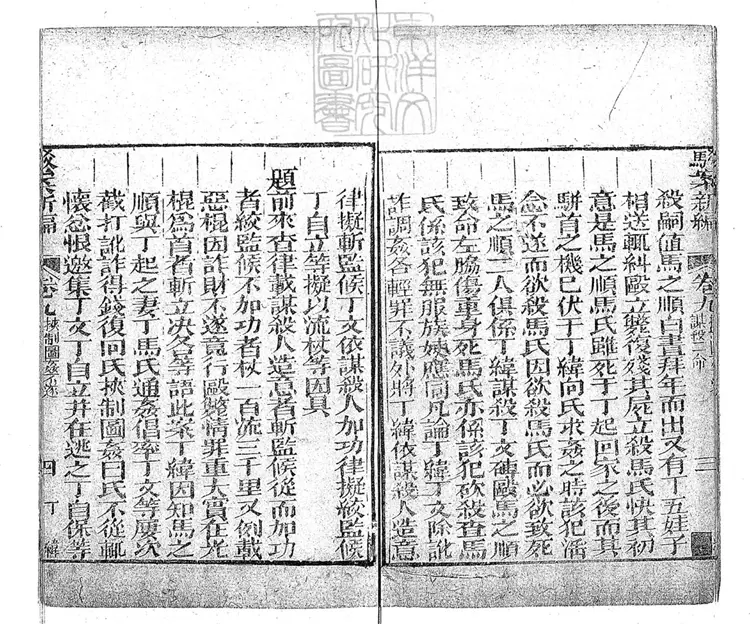 駁案新編 卷九 謀殺人命
殺嗣值馬之順白晝拜年而出又有丁五娃子
相送輒糾毆立斃復殘其屍立殺馬氏快其初
意是馬之順馬氏雖死于丁起回家之後而其
駢首之機已伏于丁緯向氏求姦之時該犯潘
忿不遂而欲殺馬氏因欲殺馬氏而必欲致死
馬之順二人俱係丁緯謀殺丁文磚毆馬之順
致命左脇傷重身死馬氏亦係該犯砍殺查馬
氏係該犯無服族嫂應同凡論丁緯丁文除訛
詐調姦各輕罪不議外將丁緯依謀殺人造意
律擬斬監候丁文依謀殺人加功律擬絞監候
丁自立等擬以流杖等因具
題前來查律載謀殺人造意者斬監候從而加功
者絞監候不加功者杖一百流三千里又例載
惡棍因詐財不遂竟行毆斃情罪重大實在光
棍為首者斬立決各等語此案丁緯因知馬之
順與丁起之妻丁馬氏通姦倡率丁文等屢次
截打訛詐得錢復向氏挾制圖姦曰氏不從輒
懷忿恨邀集丁文丁自立并在逃之丁自保等
駁案新編 卷九 挾制圖姦不遂 四 丁緯
東洋文化研究所圖書